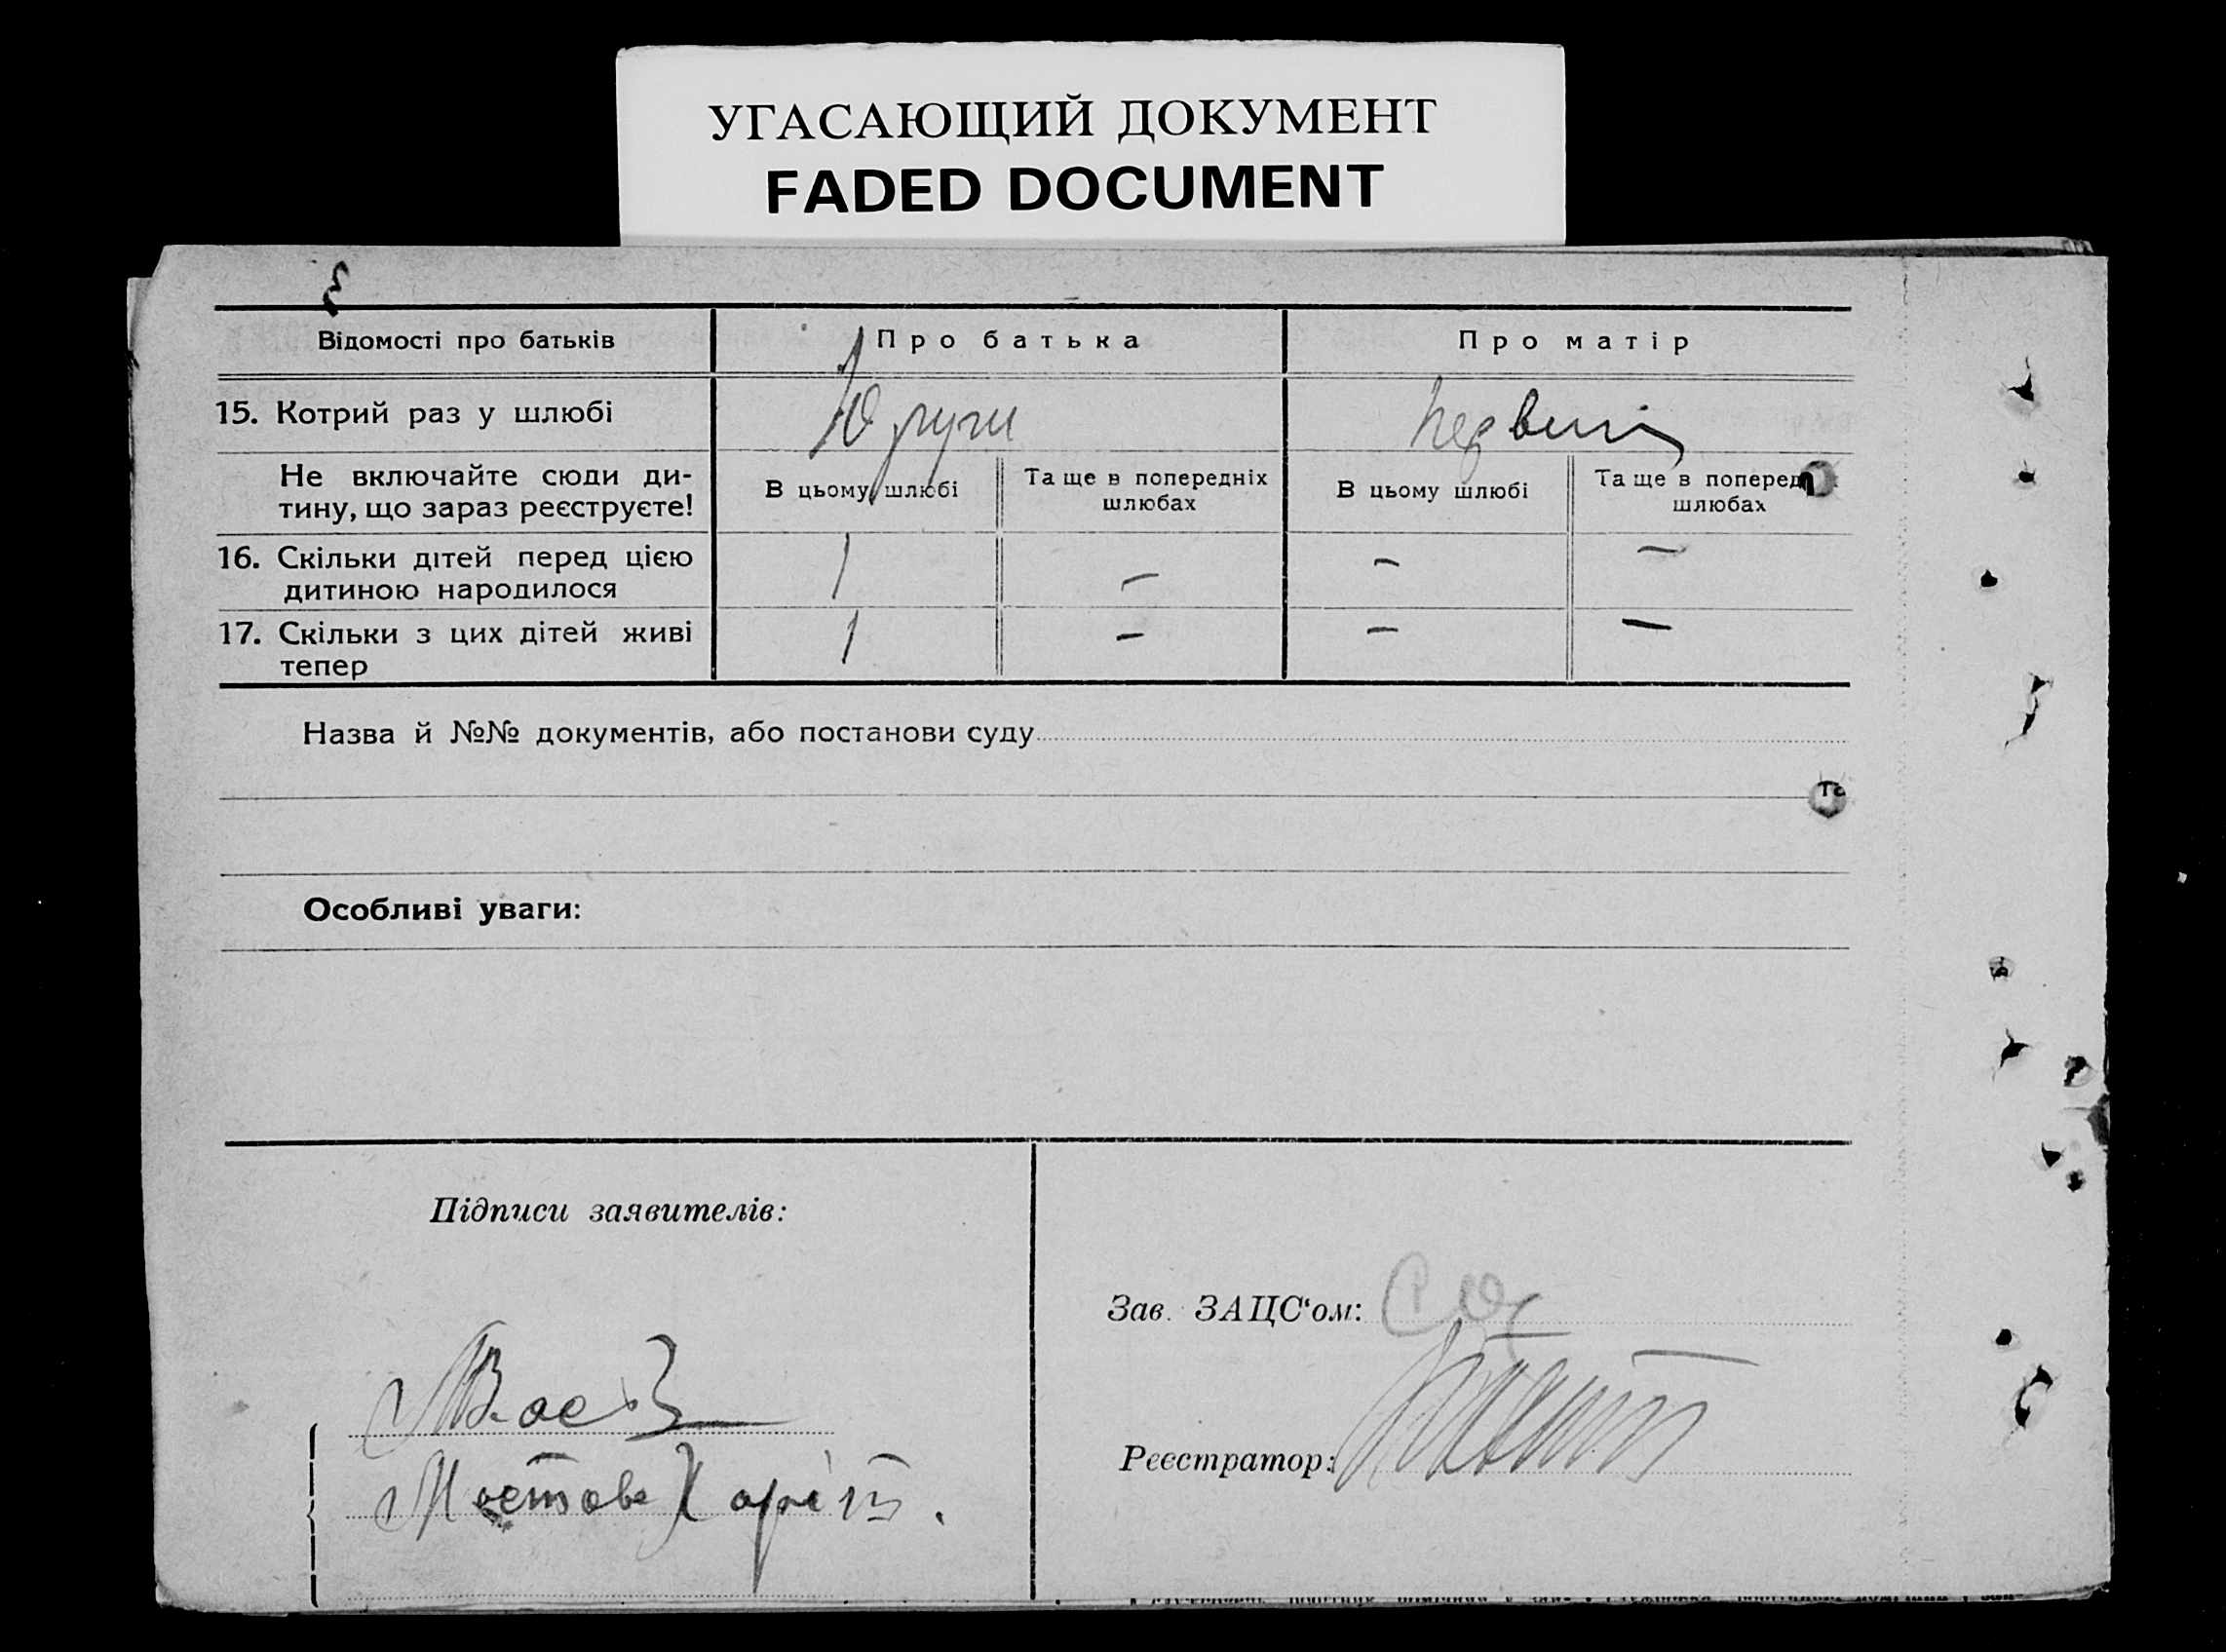 УГАСАЮЩИЙ ДОКУМЕНТ
FADED DOCUMENT
Відомості про батьків
Про батька
Про матір
15. Котрий раз у шлюбі
други
Не включайте сюди ди-
тину, що зараз реєструєте!
В цьому шлюбі
Та ще в попередніх
шлюбах
В цьому шлюбі
Та ще в поперед
шлюбах
16. Скільки дітей перед цією
дитиною народилося
1
–
–
–
17. Скільки з цих дітей живі
тепер
1
–
–
–
Назва й №№ документів, або постанови суду
Та
Особливі уваги:
Підписи заявителів:
Зав. ЗАЦС'ом:
Реєстратор: